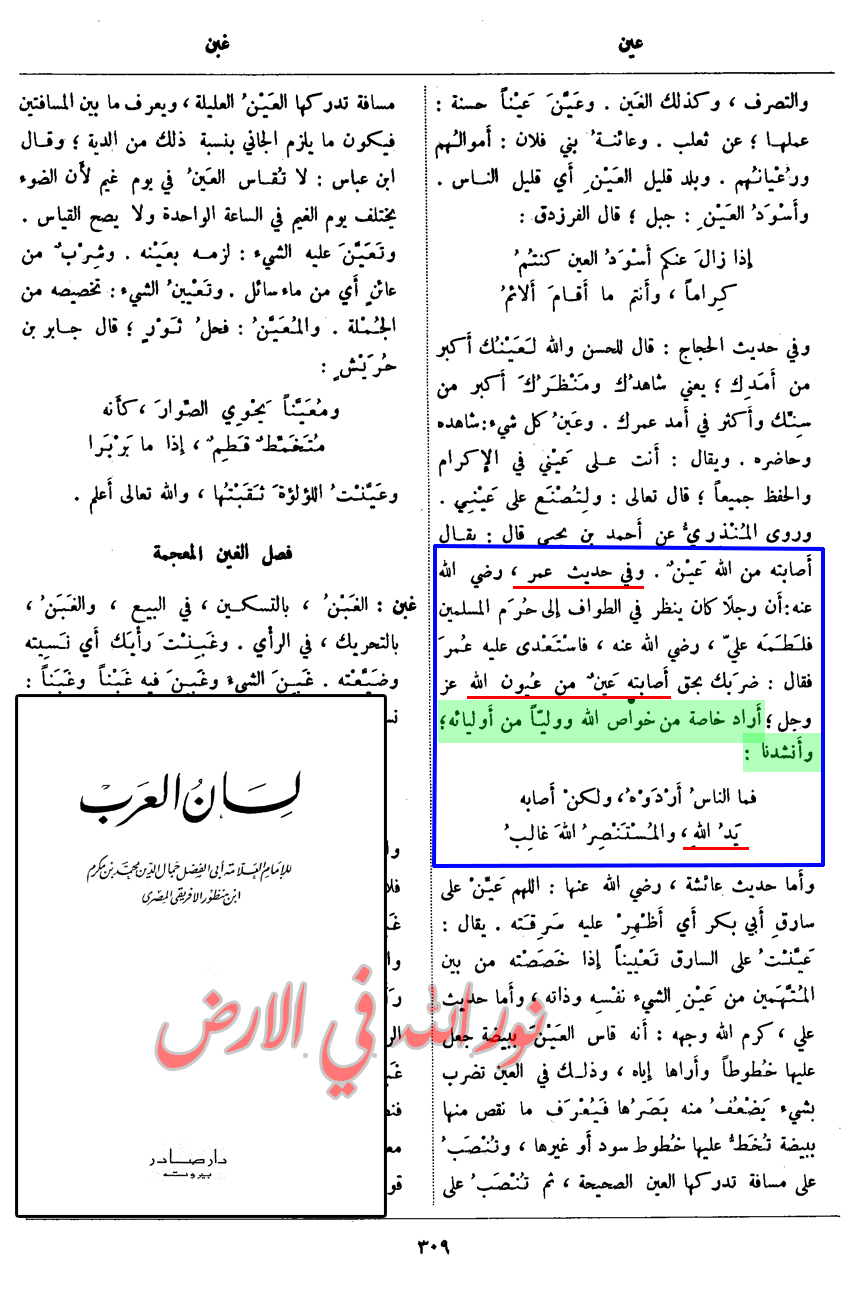 عين
غبن
والتصرف ، وكذلك الغَين . وعَيَّنَ عَيْناً حسنة :
عملها ؛ عن ثعلب . وعائنةُ بني فلان : أَموالُهم
ورُعْيانُهم . وبلد قليل العَيْنِ أَي قليل الناس .
وأَسْوَدُ العَيْنِ : جبل ؛ قال الفرزدق :
إِذا زالَ عنكم أَسْوَدُ العين كنتمُ
كِراماً ، وأَنتم ما أَقامَ أَلائمُ
وفي حديث الحجاج : قال للحسن والله لَعَيْنُك أَكبر
من أَمَدِك ؛ يعني شاهدُك ومَنْظَرُكَ أَكبر من
سِنّك وأَكثر في أَمد عمرك . وعَينُ كل شيء : شاهده
وحاضره . ويقال : أَنت على عَيْني في الإِكرام
والحفظ جميعاً ؛ قال تعالى : ولِتُصْنَع على عَيْني .
وروى المُنْذِريُّ عن أَحمد بن يحيى قال : يقال
أَصابته من الله عَيْنٌ . وفي حديث عمر ، رضي الله
عنه : أَن رجلًا كان ينظر في الطواف إِلى حُرَم المسلمين
فلَطَمَه عليّ ، رضي الله عنه ، فاسْتَعْدى عليه عُمرَ
فقال : ضربَك بحق أَصابته عَينٌ من عُيون الله عز
وجل ؛ أَراد خاصة من خواص الله ووليّاً من أَوليائه ؛
وأَنشدنا :
فما الناسُ أَرْدَوْهُ ، ولكنْ أَصابه
يَدُ اللهِ ، والمُسْتَنْصِرُ اللهَ غالِبُ
وأَما حديث عائشة ، رضي الله عنها : اللهم عَيِّنْ على
سارقِ أَبي بكر أَي أَظْهِرْ عليه سَرِقَته . يقال :
عَيَّنْتُ على السارق تَعْييناً إِذا خَصَصْته من بين
المُتَّهَمين من عَيْنِ الشيء نفْسِه وذاته ، وأَما حديث
علي ، كرم الله وجهه : أَنه قاس العَيْنَ ببيضة جعل
عليها خُطوطاً وأَراها إِياه ، وذلك في العين تضرب
بشيء يَضْعُفُ منه بَصَرُها فَيُعْرَف ما نقص منها
ببيضة تُخَطُّ عليها خُطوط سود أَو غيرها ، وتُنْصَبُ
على مسافة تدركها العين الصحيحة ، ثم تُنْصَبُ على
مسافة تدركها العَيْنُ العليلة ، ويعرف ما بين المسافتين
فيكون ما يلزم الجاني بنسبة ذلك من الدية ؛ وقال
ابن عباس : لا تُقاس العَينُ في يوم غيم لأَن الضوء
يختلف يوم الغيم في الساعة الواحدة ولا يصح القياس .
وتَعَيَّنَ عليه الشيء : لزمه بعَيْنه . وشِرْبٌ من
عائنٍ أَي من ماء سائل . وتَعْيينُ الشيء : تخصيصه من
الجُمْلة . والمُعَيَّنُ : فحلُ ثَوْرٍ ؛ قال جابر بن
حُرَيْشٍ :
ومُعَيَّناً يَحْوِي الصِّوارَ ، كأَنه
مُتَخَمِّطٌ قَطِمٌ ، إِذا ما بَرْبَرا
وعَيَّنْتُ اللؤلؤةَ ثَقَبْتُها ، والله تعالى أَعلم .
فصل الغين المعجمة
غبن : الغَبْنُ ، بالتسكين ، في البيع ، والغَبَنُ ،
بالتحريك ، في الرأْي . وغَبِنْتَ رأْيَك أَي نَسِيته
وضَيَّعْته . غَبِنَ الشيءَ وغَبِنَ فيه غَبْناً وغَبَناً :
لسان العرب
للإمام العلامة أبي الفضل جمال الدين محمد بن مكرم
ابن منظور الافريقي المصري
دار صادر
بيروت
نور الله في الارض
٣٠٩